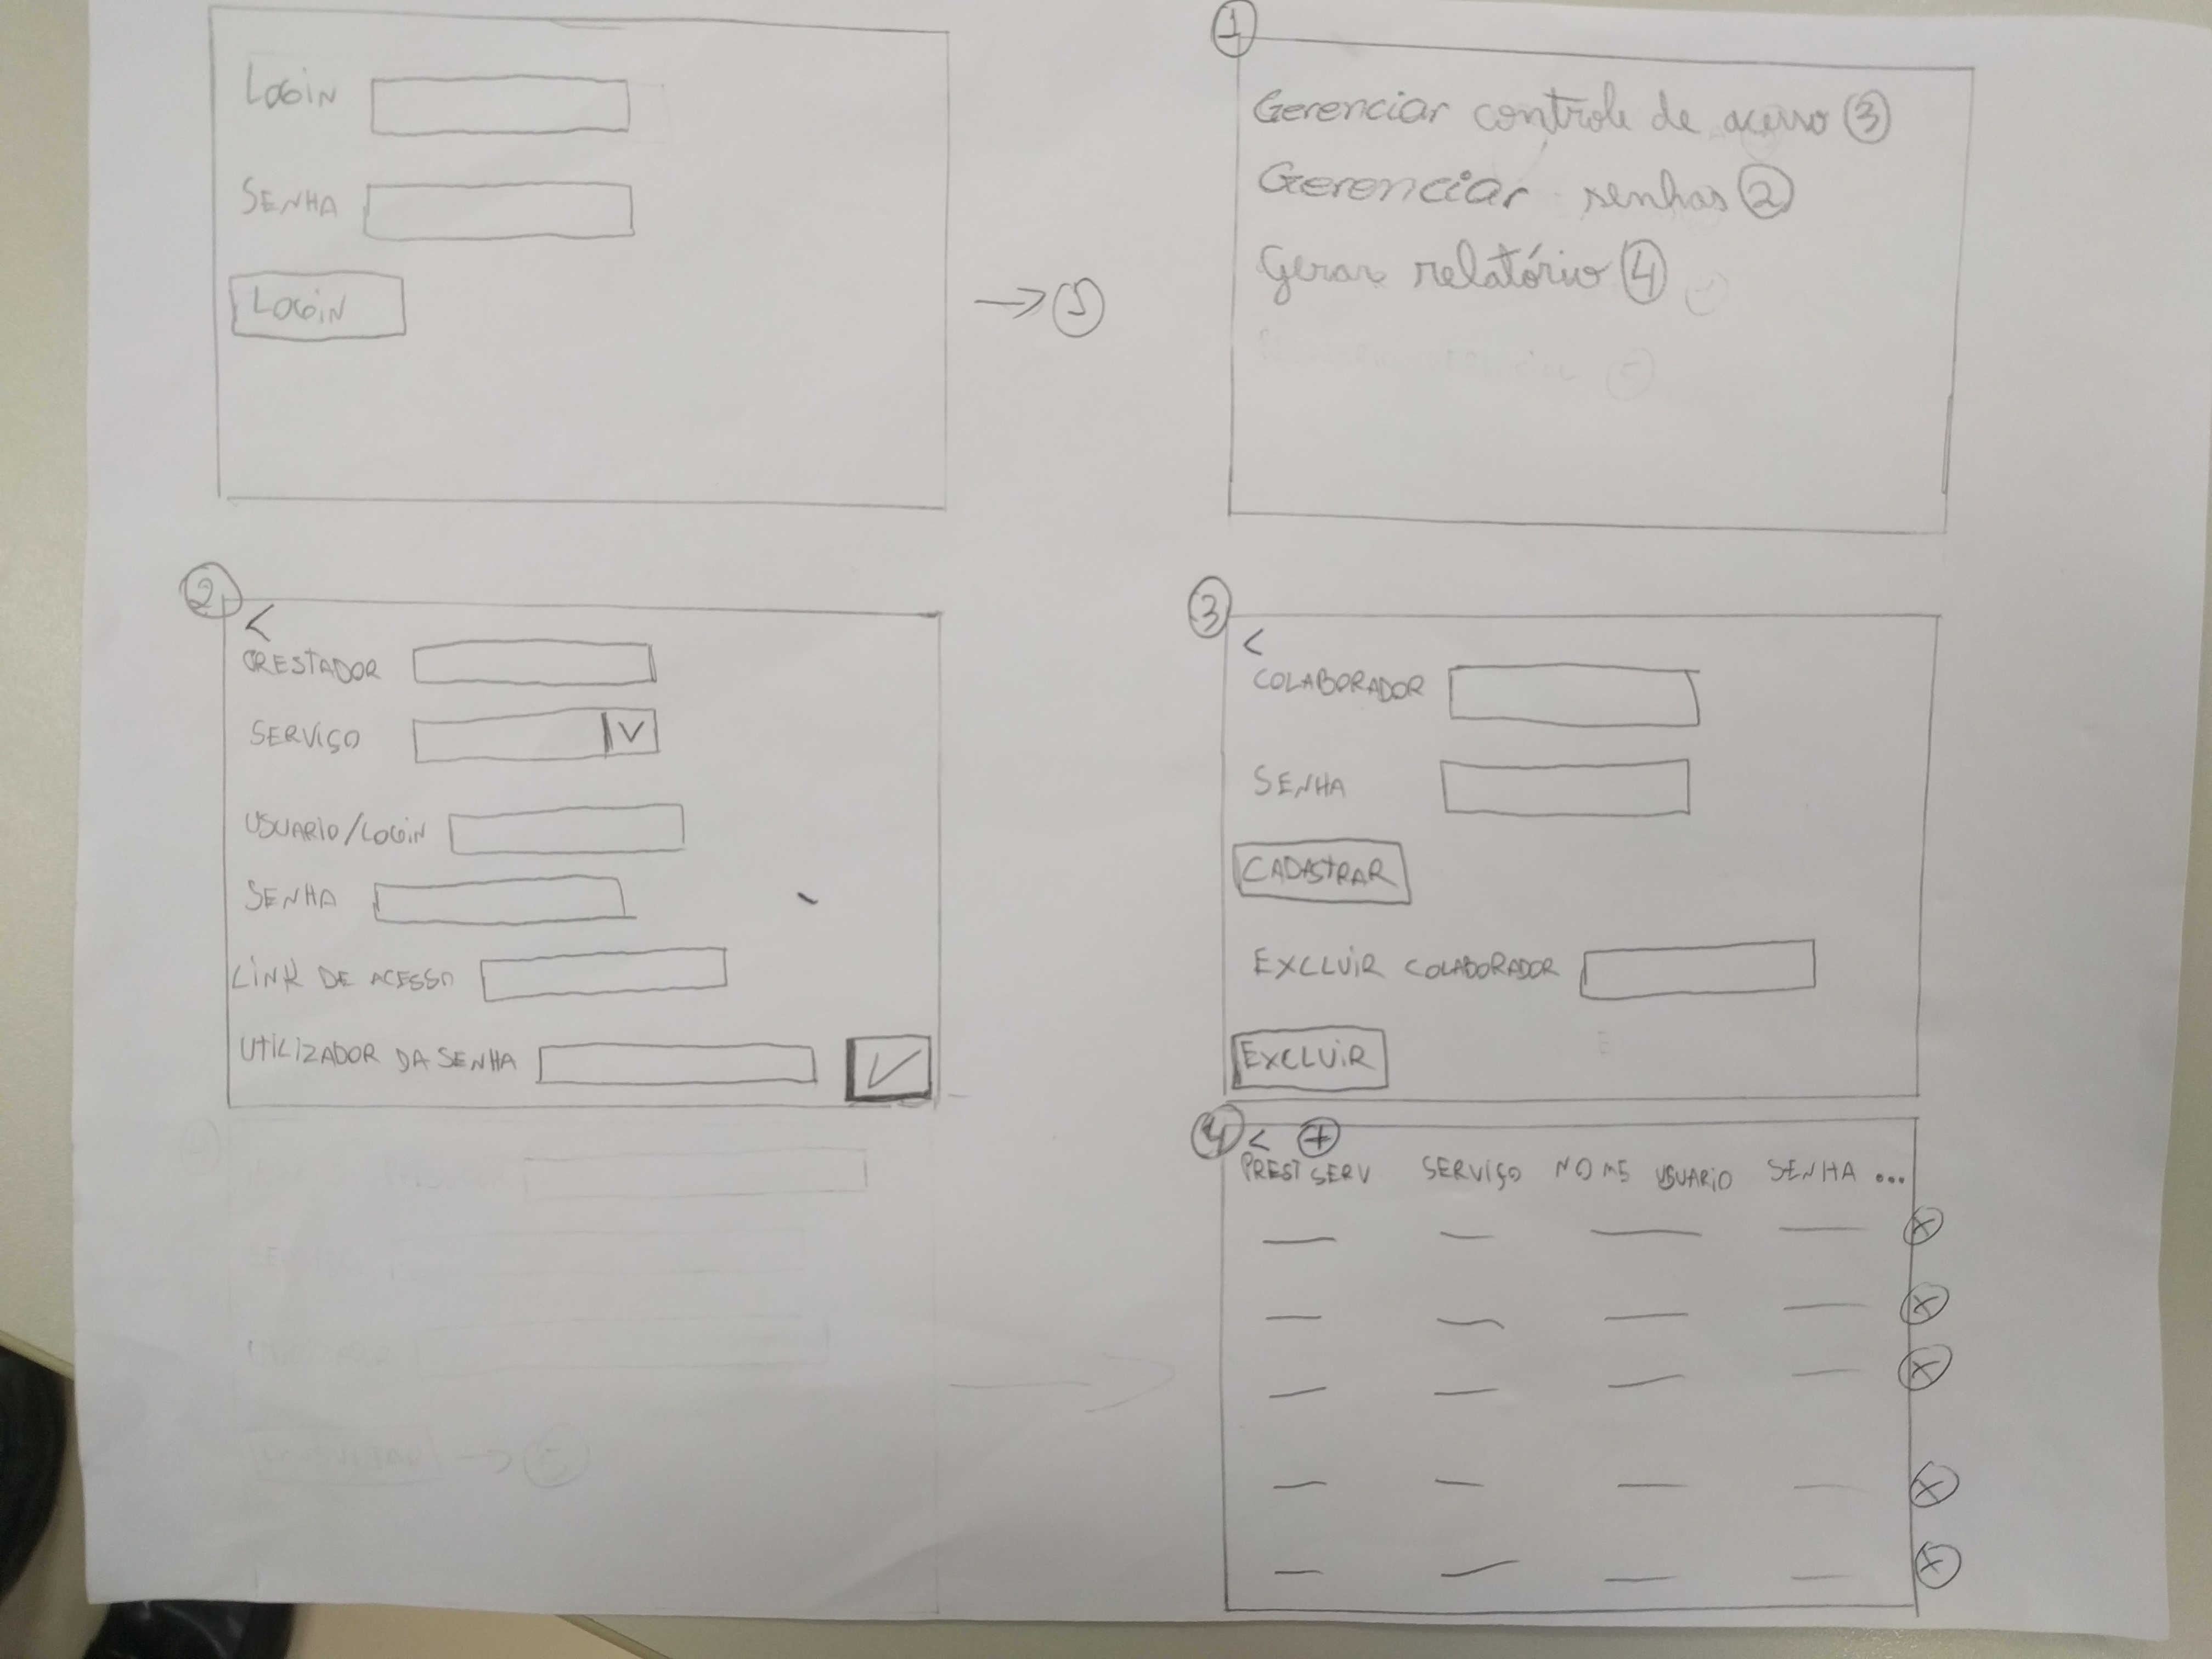 LOGIN
SENHA
LOGIN
→ 1
1
Gerenciar controle de acesso 3
Gerenciar senhas 2
Gerar relatório 4
2
<
PRESTADOR
SERVIÇO V
USUARIO/LOGIN
SENHA
LINK DE ACESSO
UTILIZADOR DA SENHA
3
<
COLABORADOR
SENHA
CADASTRAR
EXCLUIR COLABORADOR
EXCLUIR
4 < +
PREST SERV SERVIÇO NOME USUARIO SENHA ...
X
X
X
X
X
SERVIÇO
UTILIZADOR
→ 5